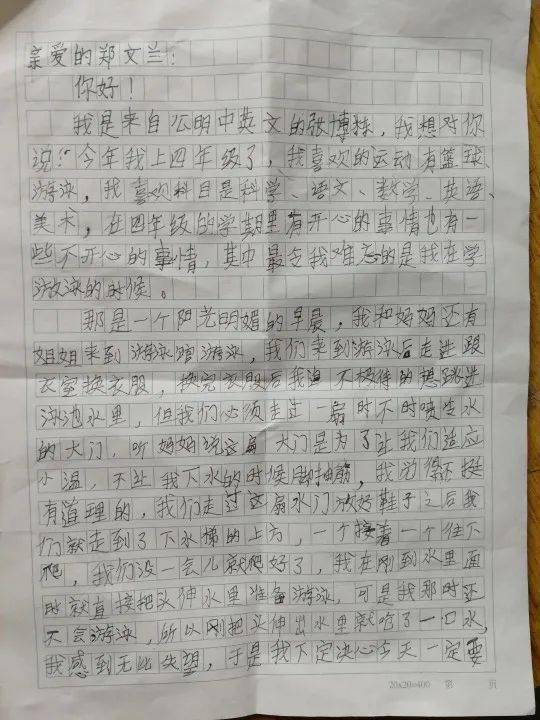 亲爱的郑文兰：
你好！
我是来自公明中英文的张博，我想对你
说：今年我上四年级了，我喜欢的运动有篮球、
游泳，我喜欢科目是科学、语文、数学、英语、
美术，在四年级的学期里有开心的事情也有一
些不开心的事情，其中最令我难忘的是我在学
游泳的时候。
那是一个阳光明媚的早晨，我和妈妈还有
姐姐来到游泳馆游泳，我们来到游泳后走进
衣室换衣服，换完衣服后我迫不极待的想跳进
泳池水里，但我们必须走过一扇时不时喷出水
的大门，听妈妈说这扇大门是为了让我们适应
小温，不让我下水的时候脚抽筋，我觉得还挺
有道理的，我们走过这扇水门放好鞋子之后我
们就走到了下水梯的上方，一个接着一个往下
爬，我们没一会儿就爬好了，我在刚到水里面
时就直接把头伸水里准备游泳，可是我那时还
不会游泳，所以刚把头伸出水里就呛了一口水，
我感到无比失望，于是我下定决心今天一定要
20x20=400 第 页